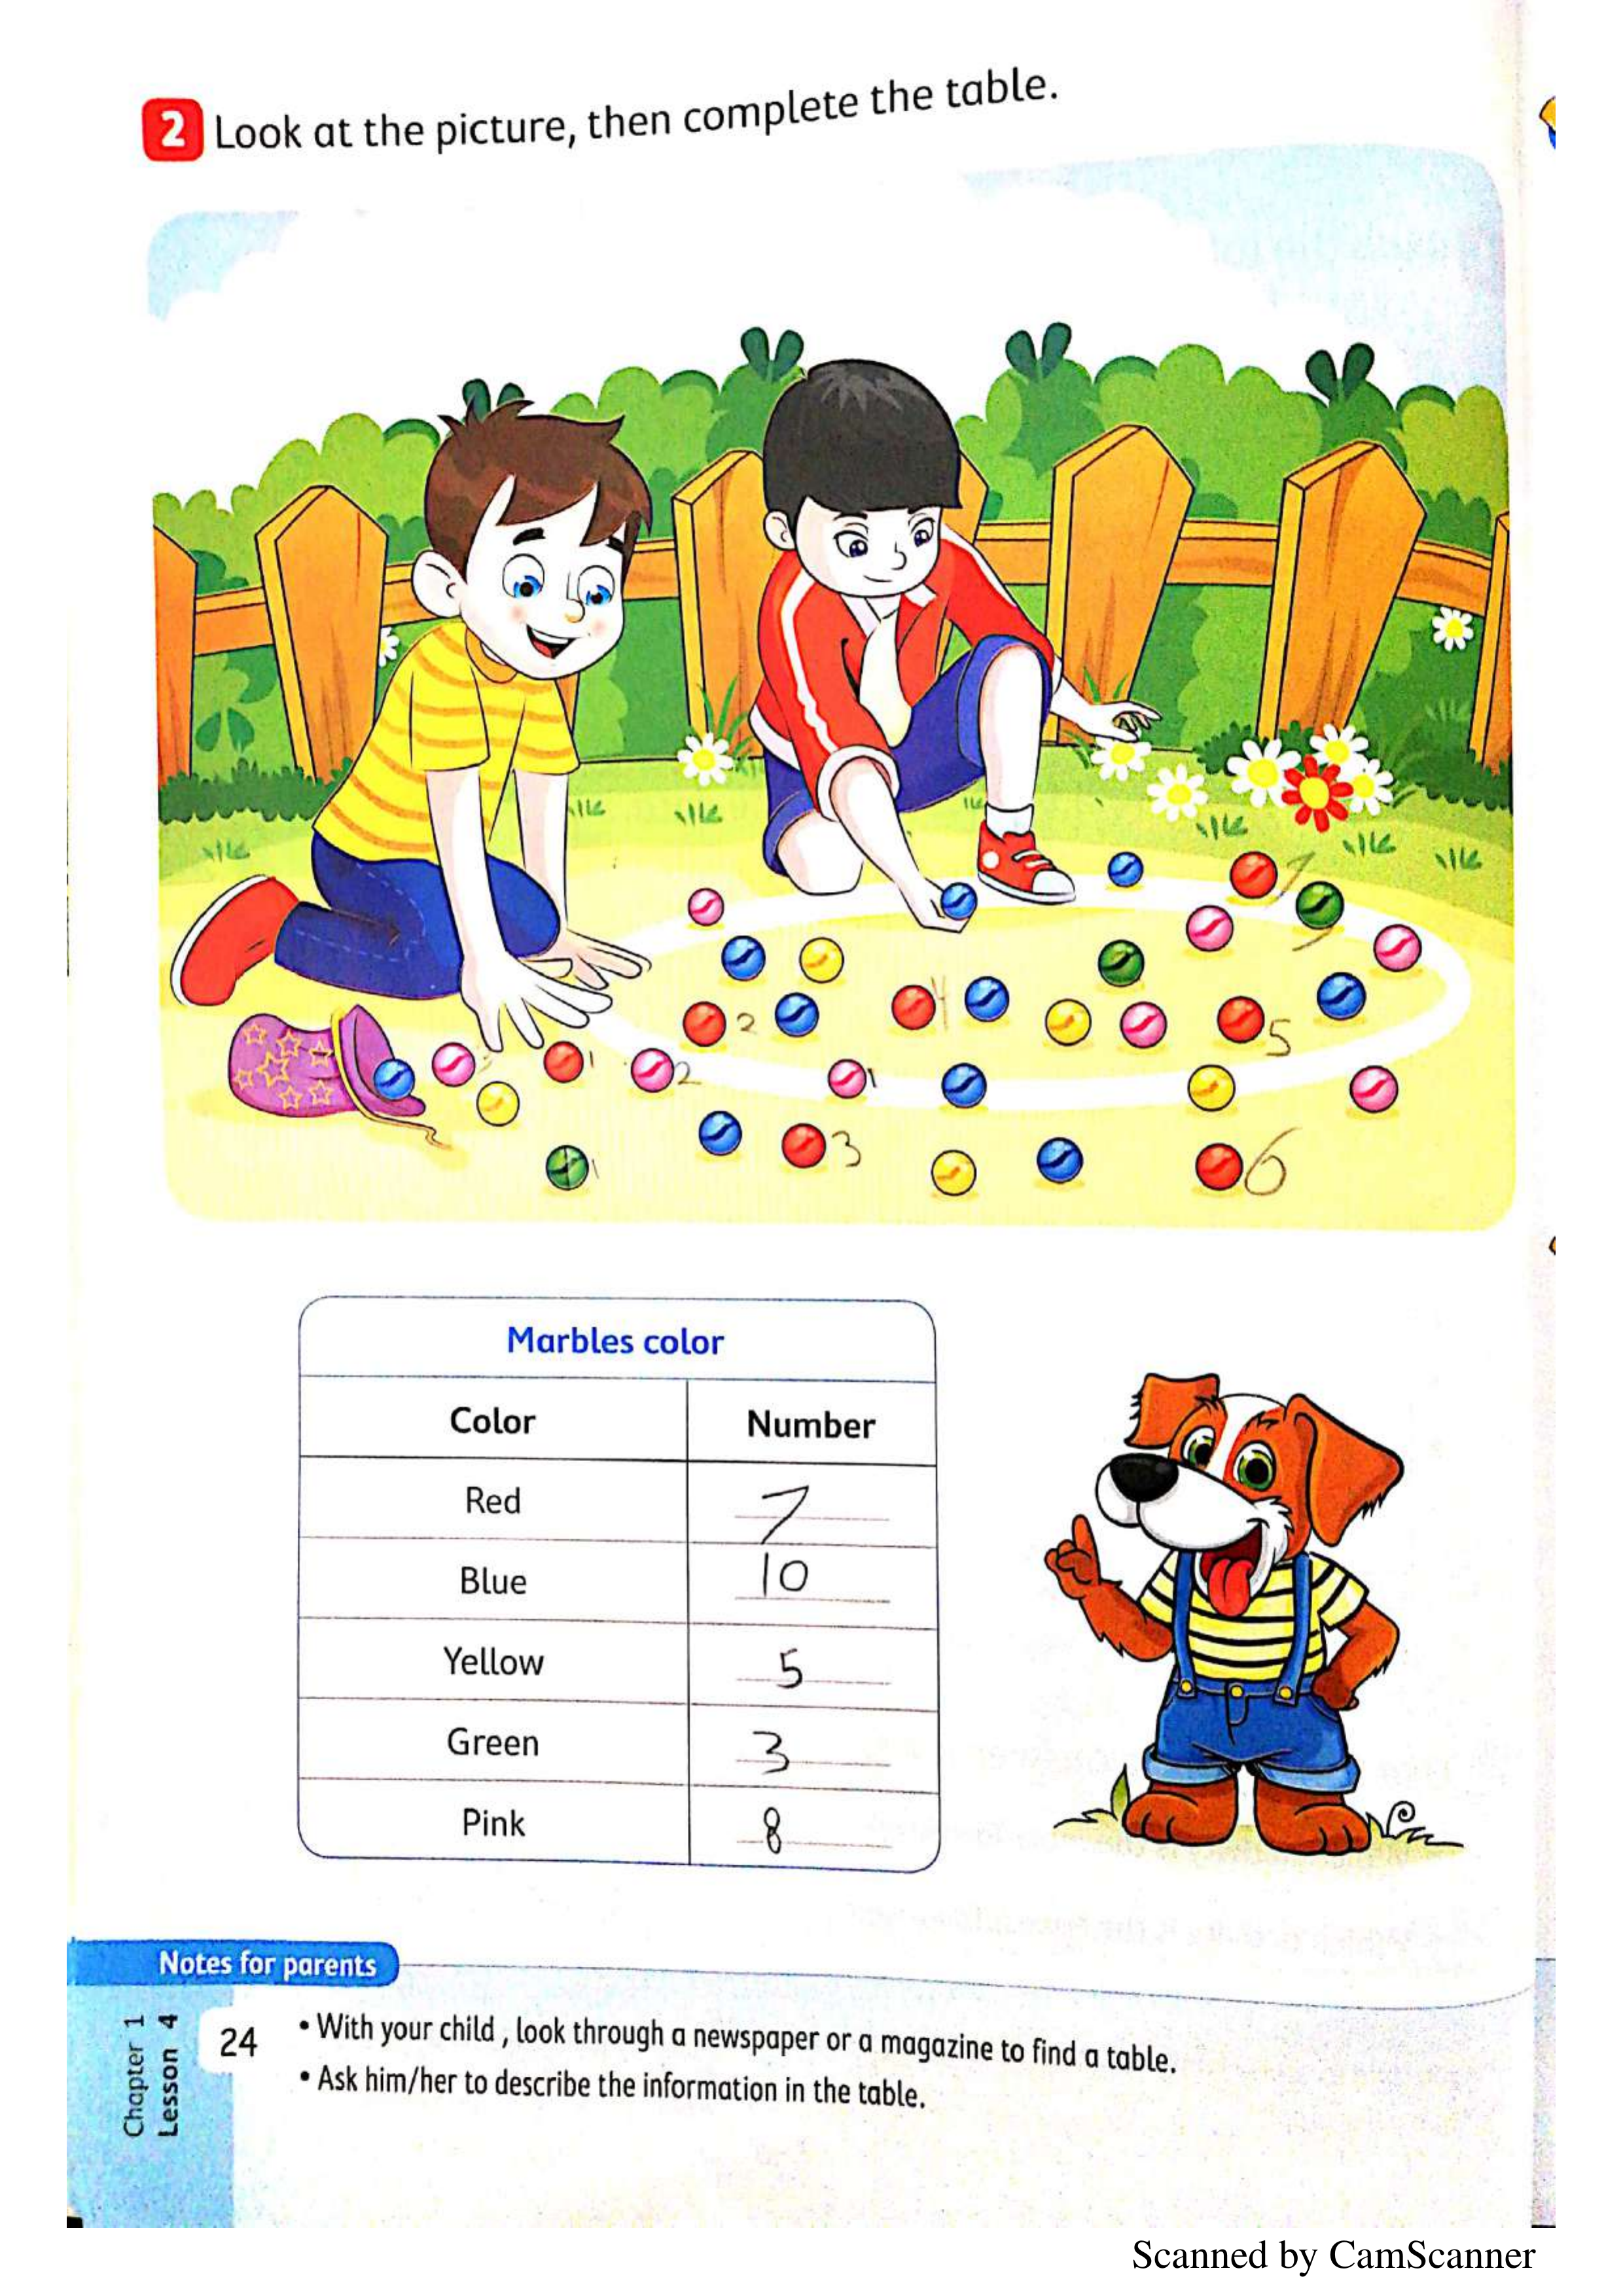 2 Look at the picture, then complete the table.
7
3
4
2
5
1
2
1
3
1
6
Marbles color
Color Number
Red 7
Blue 10
Yellow 5
Green 3
Pink 8
Notes for parents
Chapter 1
Lesson 4
24
• With your child , look through a newspaper or a magazine to find a table.
• Ask him/her to describe the information in the table.
Scanned by CamScanner